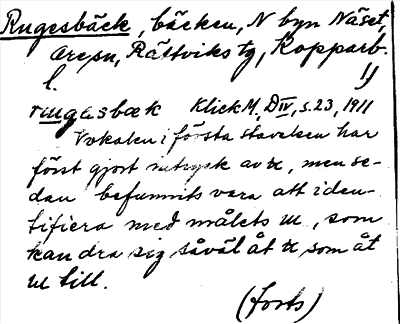 Rugesbäck, bäcken, N byn Näset,
Oresn, Rättviks tg, Kopparb.
l. 1)
rugasbæk Klick M, D IV, s. 23, 1911
Vokalen i första stavelsen har
först gjort intryck av , men se-
dan befunnits vara att iden-
tifiera med målets , som
kan dra sig såväl åt som åt
 till.
(forts)